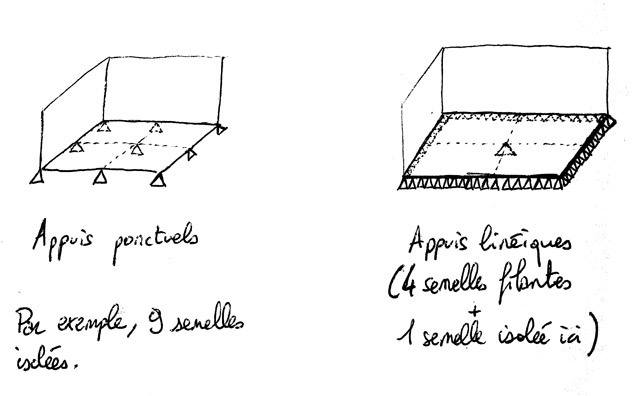 Appuis ponctuels
Par exemple, 9 semelles
isolées.
Appuis linéiques
(4 semelles filantes
+
1 semelle isolée ici)